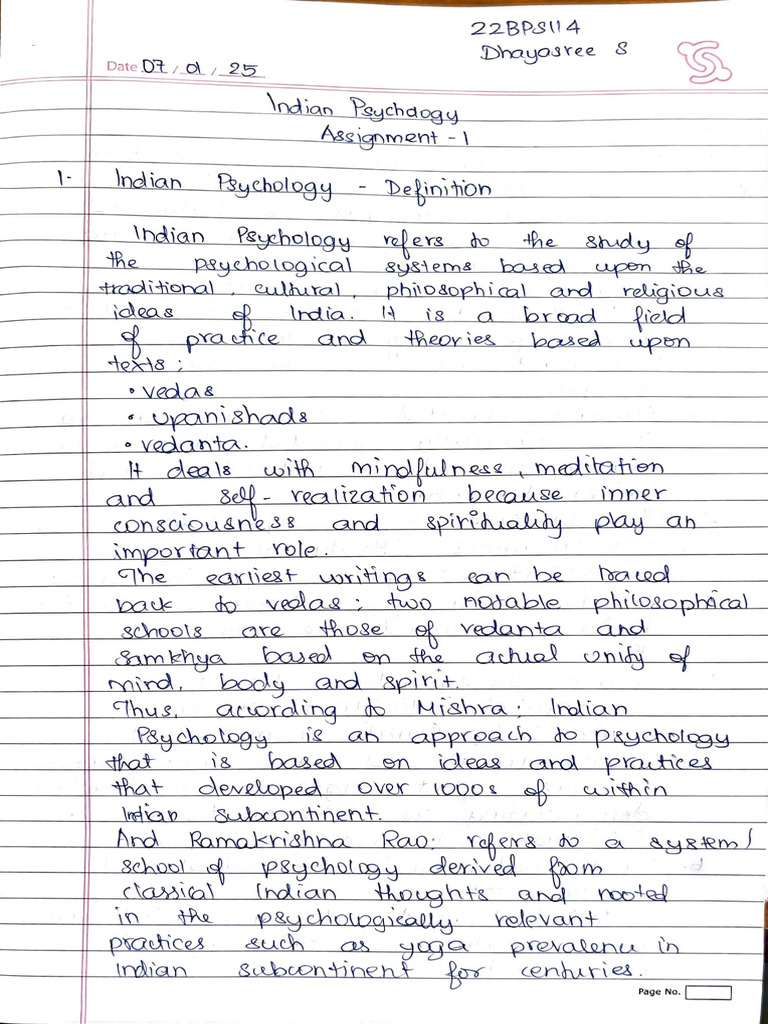 22BPS114
Dhayasree S
Date 07/01/25
Indian Psychology
Assignment - 1
1. Indian Psychology - Definition
Indian Psychology refers to the study of
the psychological systems based upon the
traditional, cultural, philosophical and religious
ideas of India. It is a broad field
of practice and theories based upon
texts:
• vedas
• upanishads
• vedanta.
It deals with mindfulness, meditation
and self-realization because inner
consciousness and spirituality play an
important role.
The earliest writings can be traced
back to vedas; two notable philosophical
schools are those of vedanta and
Samkhya based on the actual unity of
mind, body and spirit.
Thus, according to Mishra: Indian
Psychology is an approach to psychology
that is based on ideas and practices
that developed over 1000s of within
Indian subcontinent.
And Ramakrishna Rao: refers to a system/
school of psychology derived from
classical Indian thoughts and rooted
in the psychologically relevant
practices such as yoga prevalenu in
Indian subcontinent for centuries.
Page No.